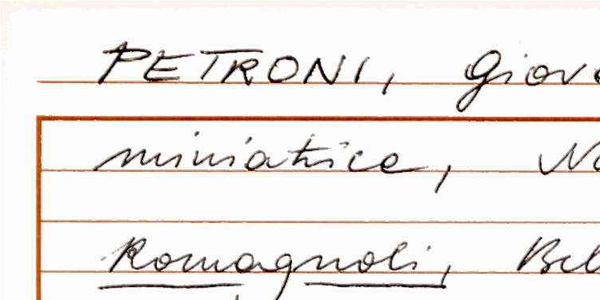 PETRONI, Giov
miniatrice, No
Romagnoli, Bel